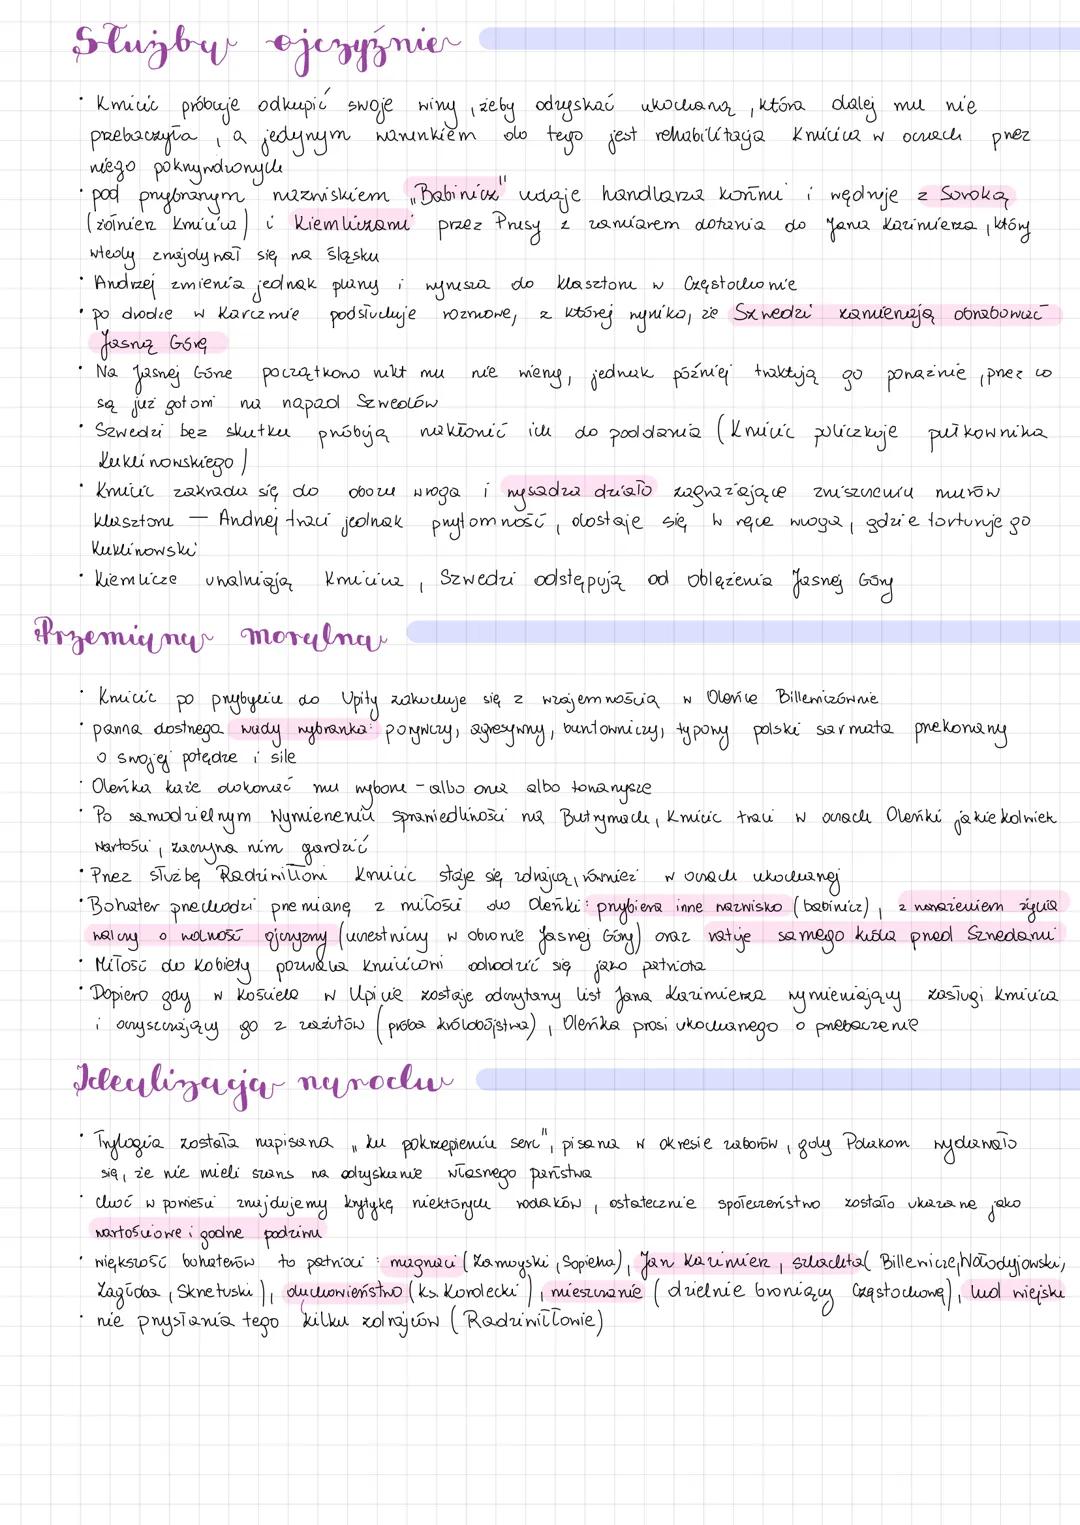 Służba ojczyźnie
• Kmicic próbuje odkupić swoje winy, żeby odzyskać ukochaną, która dalej mu nie
przebaczyła, a jedynym warunkiem do tego jest rehabilitacja Kmicica w oczach przez
niego pokrzywdzonych
• pod przybranym nazwiskiem „Babinicz" udaje handlarza końmi i wędruje z Soroką
(żołnierz Kmicica) i Kiemliczami przez Prusy z zamiarem dotarcia do Jana Kazimierza, który
wtedy znajdywał się na śląsku
• Andrzej zmienia jednak plany i wyrusza do klasztoru w Częstochowie
• po drodze w Karczmie podsłuchuje rozmowę, z której wynika, że Szwedzi zamierzają obrabować
Jasną Górę
• Na Jasnej Górze początkowo nikt mu nie wierzy, jednak później traktują go poważnie, przez co
są już gotowi na napad Szwedów
• Szwedzi bez skutku próbują nakłonić ich do poddania (Kmicic policzkuje pułkownika
Kuklinowskiego)
• Kmicic zakrada się do obozu wroga i wysadza działo zagrażające zniszczeniu murów
klasztoru — Andrzej traci jednak przytomność, dostaje się w ręce wroga, gdzie torturuje go
Kuklinowski
• Kiemlicze uwalniają Kmicica, Szwedzi odstępują od oblężenia Jasnej Góry
Przemiana moralna
• Kmicic po przybyciu do Upity zakochuje się z wzajemnością w Oleńce Billewiczównie
• panna dostrzega wady wybranka: porywczy, agresywny, buntowniczy, typowy polski sarmata przekonany
o swojej potędze i sile
• Oleńka każe dokonać mu wyboru - albo ona albo towarzysze
• Po samodzielnym wymierzeniu sprawiedliwości na Butrymach, Kmicic traci w oczach Oleńki jakiekolwiek
wartości, zaczyna nim gardzić
• Przez służbę Radziwiłłowi Kmicic staje się zdrajcą, również w oczach ukochanej
• Bohater przechodzi przemianę z miłości do Oleńki: przybiera inne nazwisko (babinicz), z narażeniem życia
walczy o wolność ojczyzny (uczestniczy w obronie Jasnej Góry) oraz ratuje samego króla przed Szwedami
• Miłość do kobiety pozwala Kmicicowi odrodzić się jako patriota
• Dopiero gdy w kościele w Upicie zostaje odczytany list Jana Kazimierza wymieniający zasługi Kmicica
i oczyszczający go z zarzutów (próba królobójstwa), Oleńka prosi ukochanego o przebaczenie
Idealizacja narodu
• Trylogia została napisana „ku pokrzepieniu serc", pisana w okresie zaborów, gdy Polakom wydawało
się, że nie mieli szans na odzyskanie własnego państwa
• choć w powieści znajdujemy krytykę niektórych rodaków, ostatecznie społeczeństwo zostało ukazane jako
wartościowe i godne podziwu
• większość bohaterów to patrioci: magnaci (Zamoyski, Sapieha), Jan Kazimierz, szlachta (Billewicze, Wołodyjowski,
Zagłoba, Skrzetuski), duchowieństwo (ks. Kordecki), mieszczanie (dzielnie broniący Częstochowę), lud wiejski
• nie przysłania tego kilku zdrajców (Radziwiłłowie)